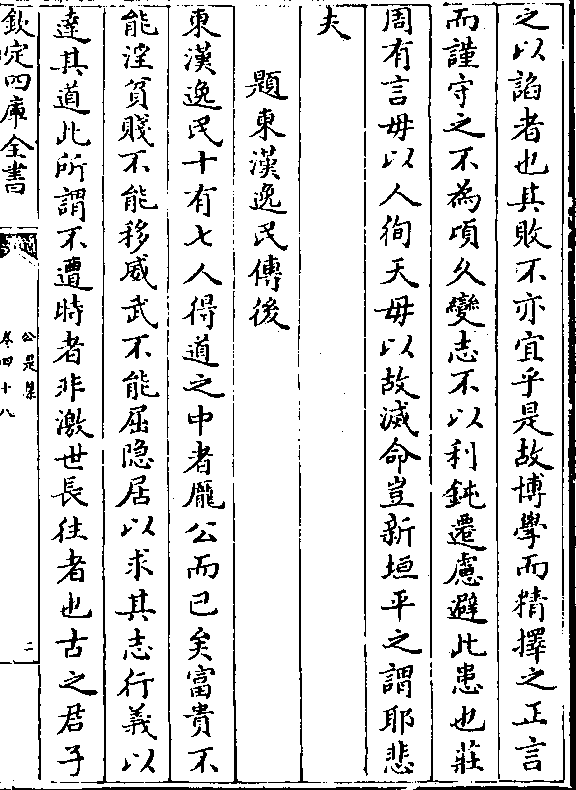 之以諂者也其敗不亦宜乎是故博學而精擇之正言
而謹守之不為頃久變志不以利鈍遷慮避此患也莊
周有言毋以人徇天毋以故滅命豈新垣平之謂耶悲
夫
題東漢逸民傳後
東漢逸民十有七人得道之中者龎公而已矣富貴不
能淫貧賤不能移威武不能屈隐居以求其志行義以
達其道此所謂不遭時者非激世長往者也古之君子
欽定四庫全書
公是集
卷四十八
二